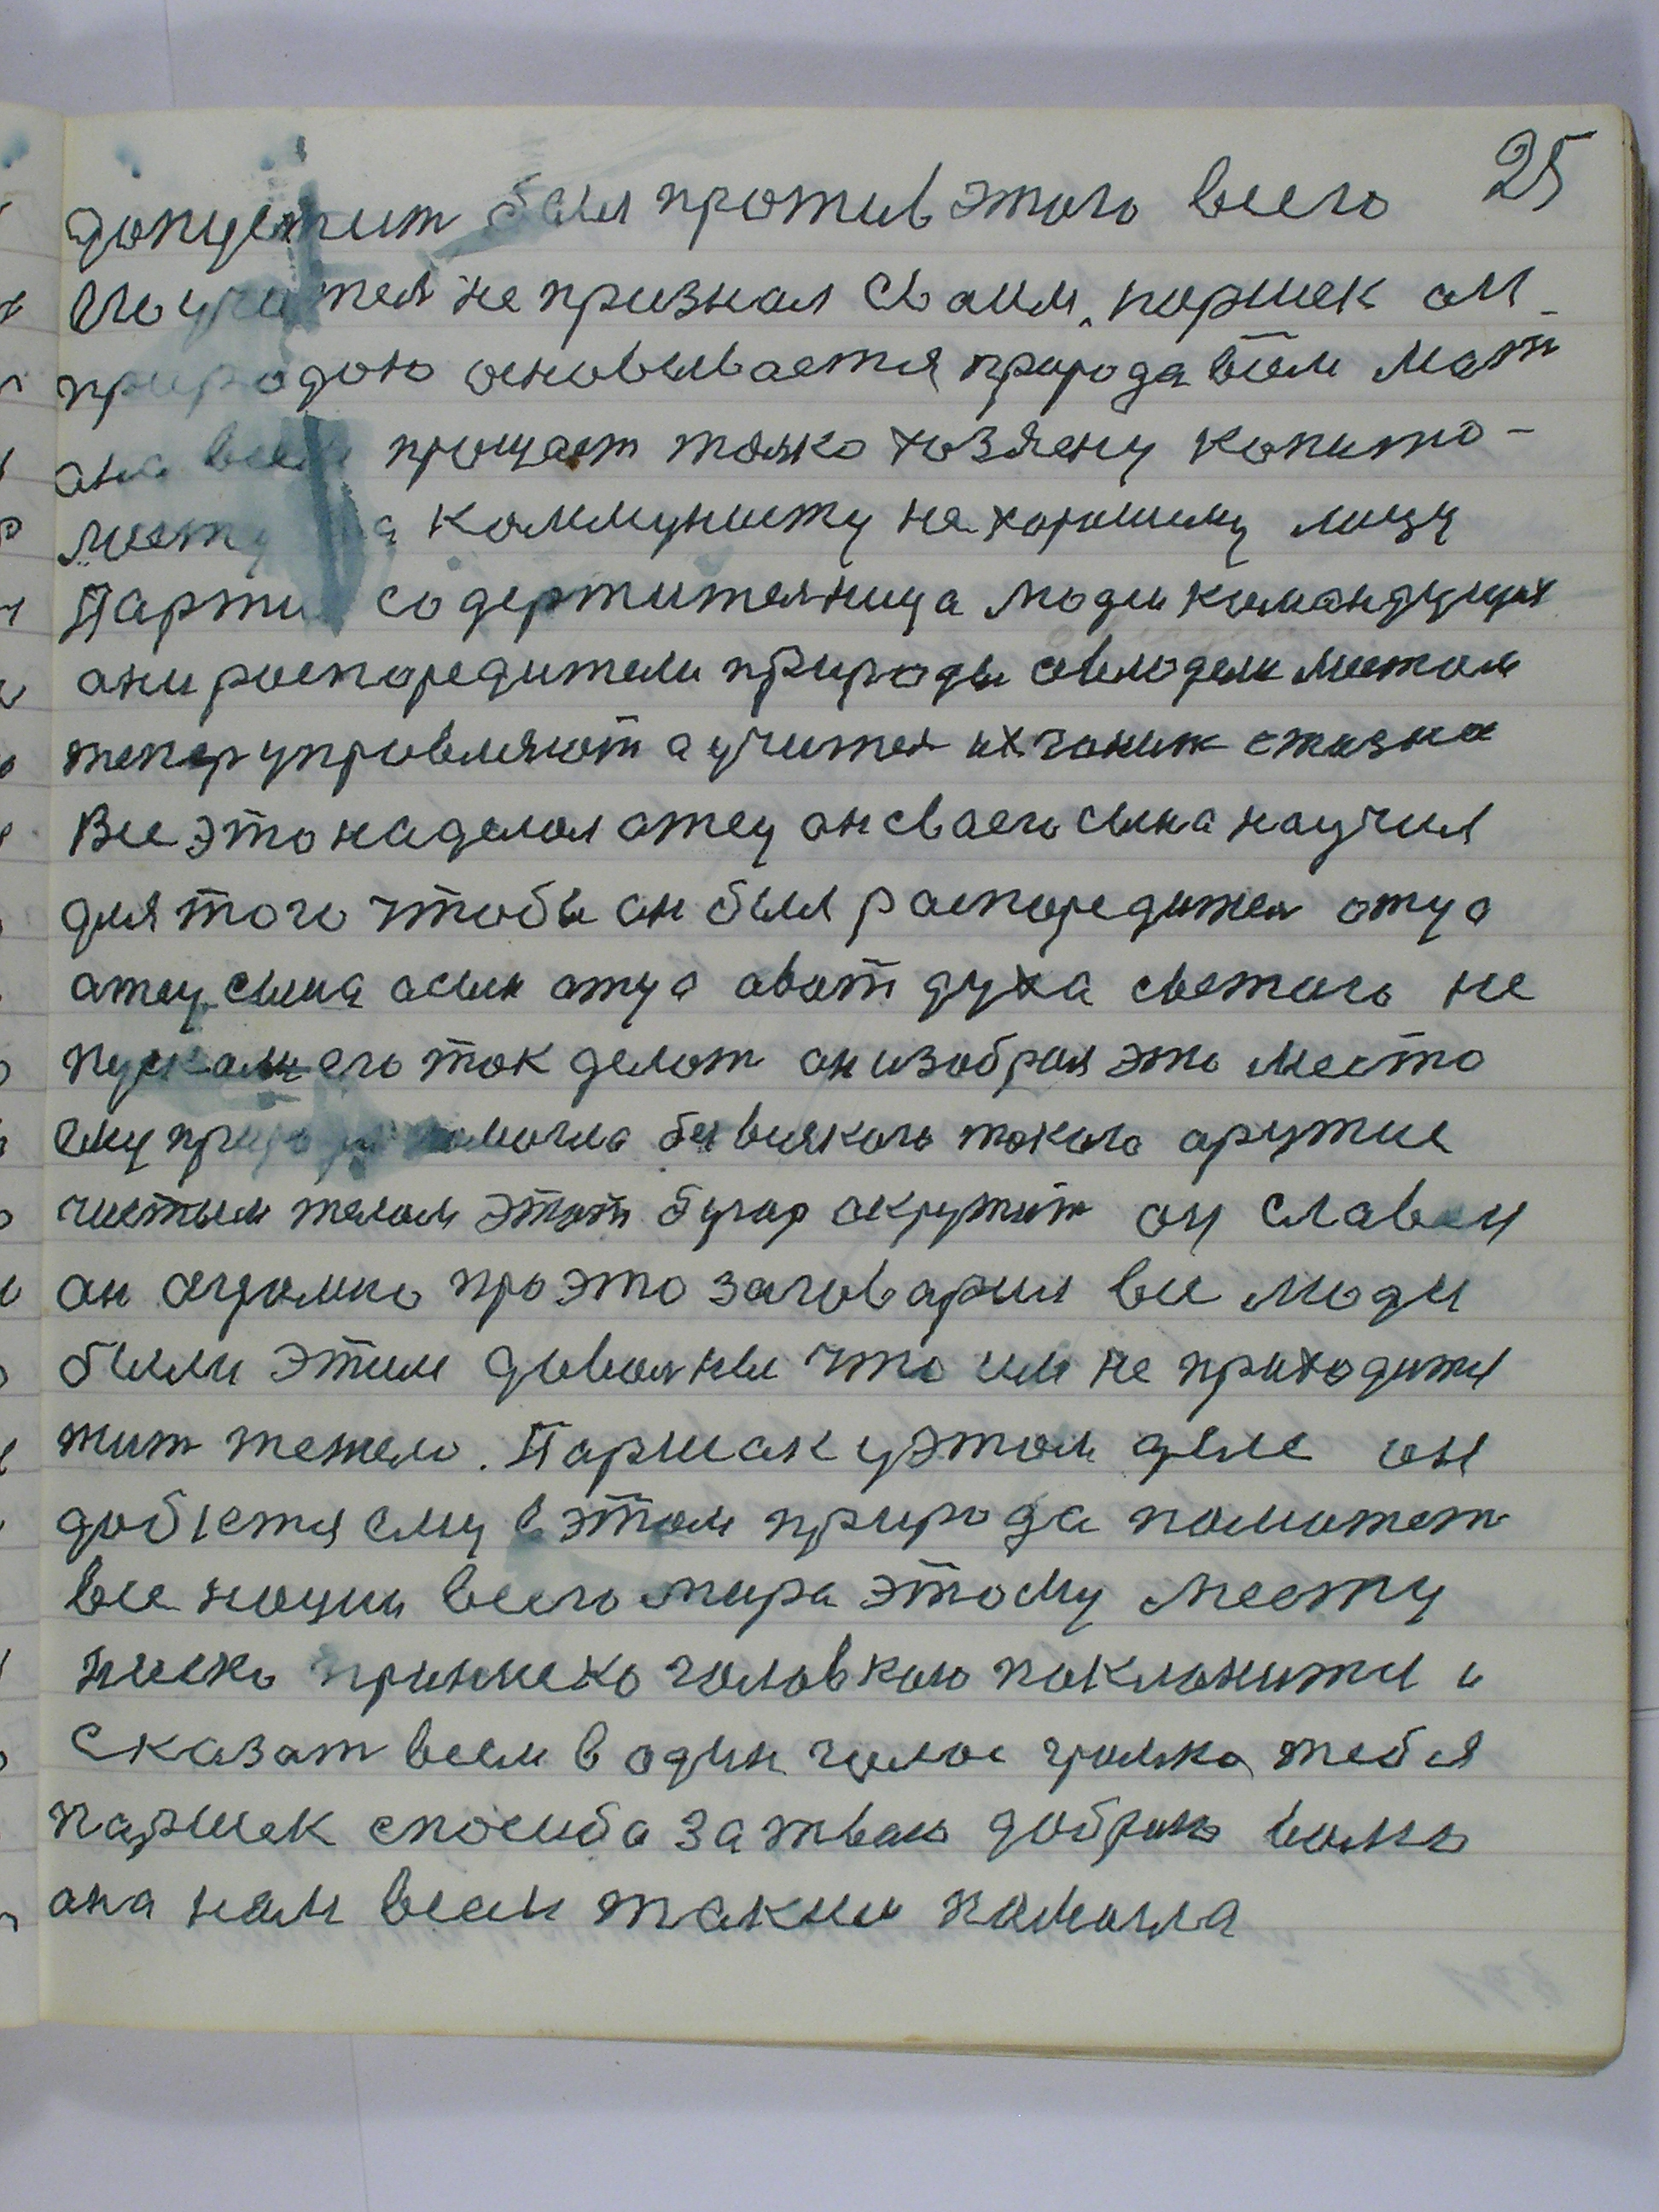 25
допустит был против этого всего
его учител не признал своим, паршек он
природою основывается природа всем мат
она всем прощает толко хозяену копито-
листу а коммунисту на хорошему лицу
Парти содержителница люди командущия
они роспоредители природы овлодели местом
тепер управляют а учител их гониж сжизна
Все это наделол отец он сваего сына научил
для того чтобы он был распоредител отца
отец сына осын отца овот духа светого не
пускали его ток делот он избрал это место
ему природа помогла безвиякого токого оружия
чистым телом этот бугор окружит он славен
он огромно про это заговарил все люди
были этим доволны что им не приходится
жит тежело. Паршак уэтом деле он
добъется ему в этом природа поможет
все нации всего мира этому месту
ниско приниско головкою поклонится и
сказат всем в один голос громко тебя
паршек спосиба за твою добрую волю
она нам всем такии помогла